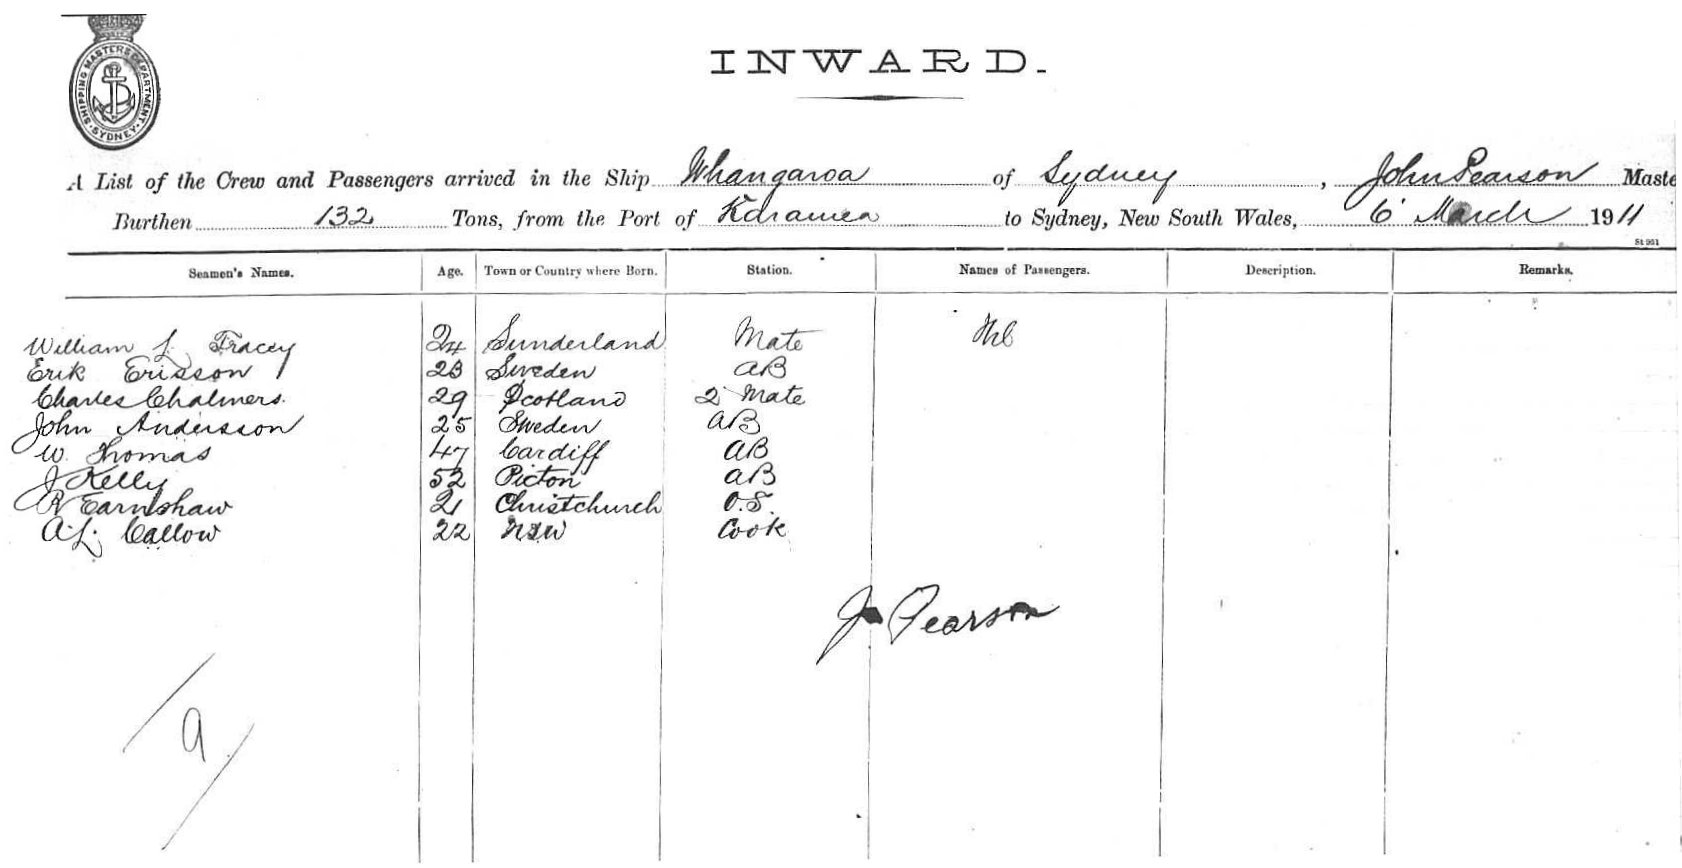 SHIPPING MASTERS DEPARTMENT
SYDNEY
INWARD.
A List of the Crew and Passengers arrived in the Ship Whangaroa of Sydney, John Pearson Maste
Burthen 132 Tons, from the Port of Karamea to Sydney, New South Wales, 6 March 1911
St 951
Seamen's Names. Age. Town or Country where Born. Station. Names of Passengers. Description. Remarks.
William L Tracey 24 Sunderland Mate
Erik Erisson 23 Sweden AB
Charles Chalmers. 29 Scotland 2 Mate
John Andersson 25 Sweden AB
W. Thomas 47 Cardiff AB
J Kelly 52 Picton AB
R Earnshaw 21 Christchurch O.S.
A.L. Callow 22 NSW Cook
J Pearson
9